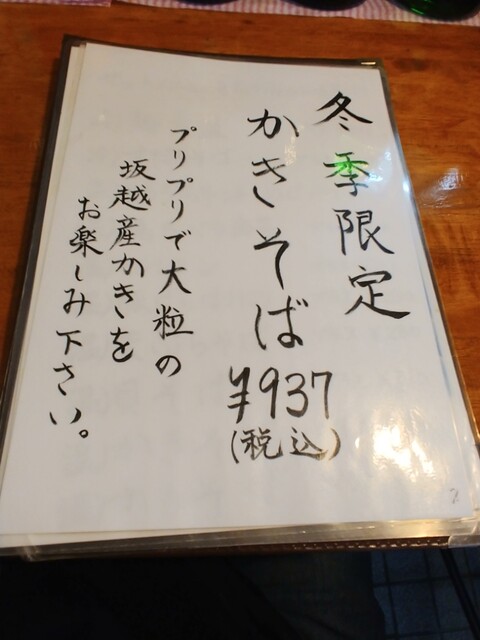 冬季限定
かきそば
¥937
(税込)
プリプリで大粒の
坂越産かきを
お楽しみ下さい。